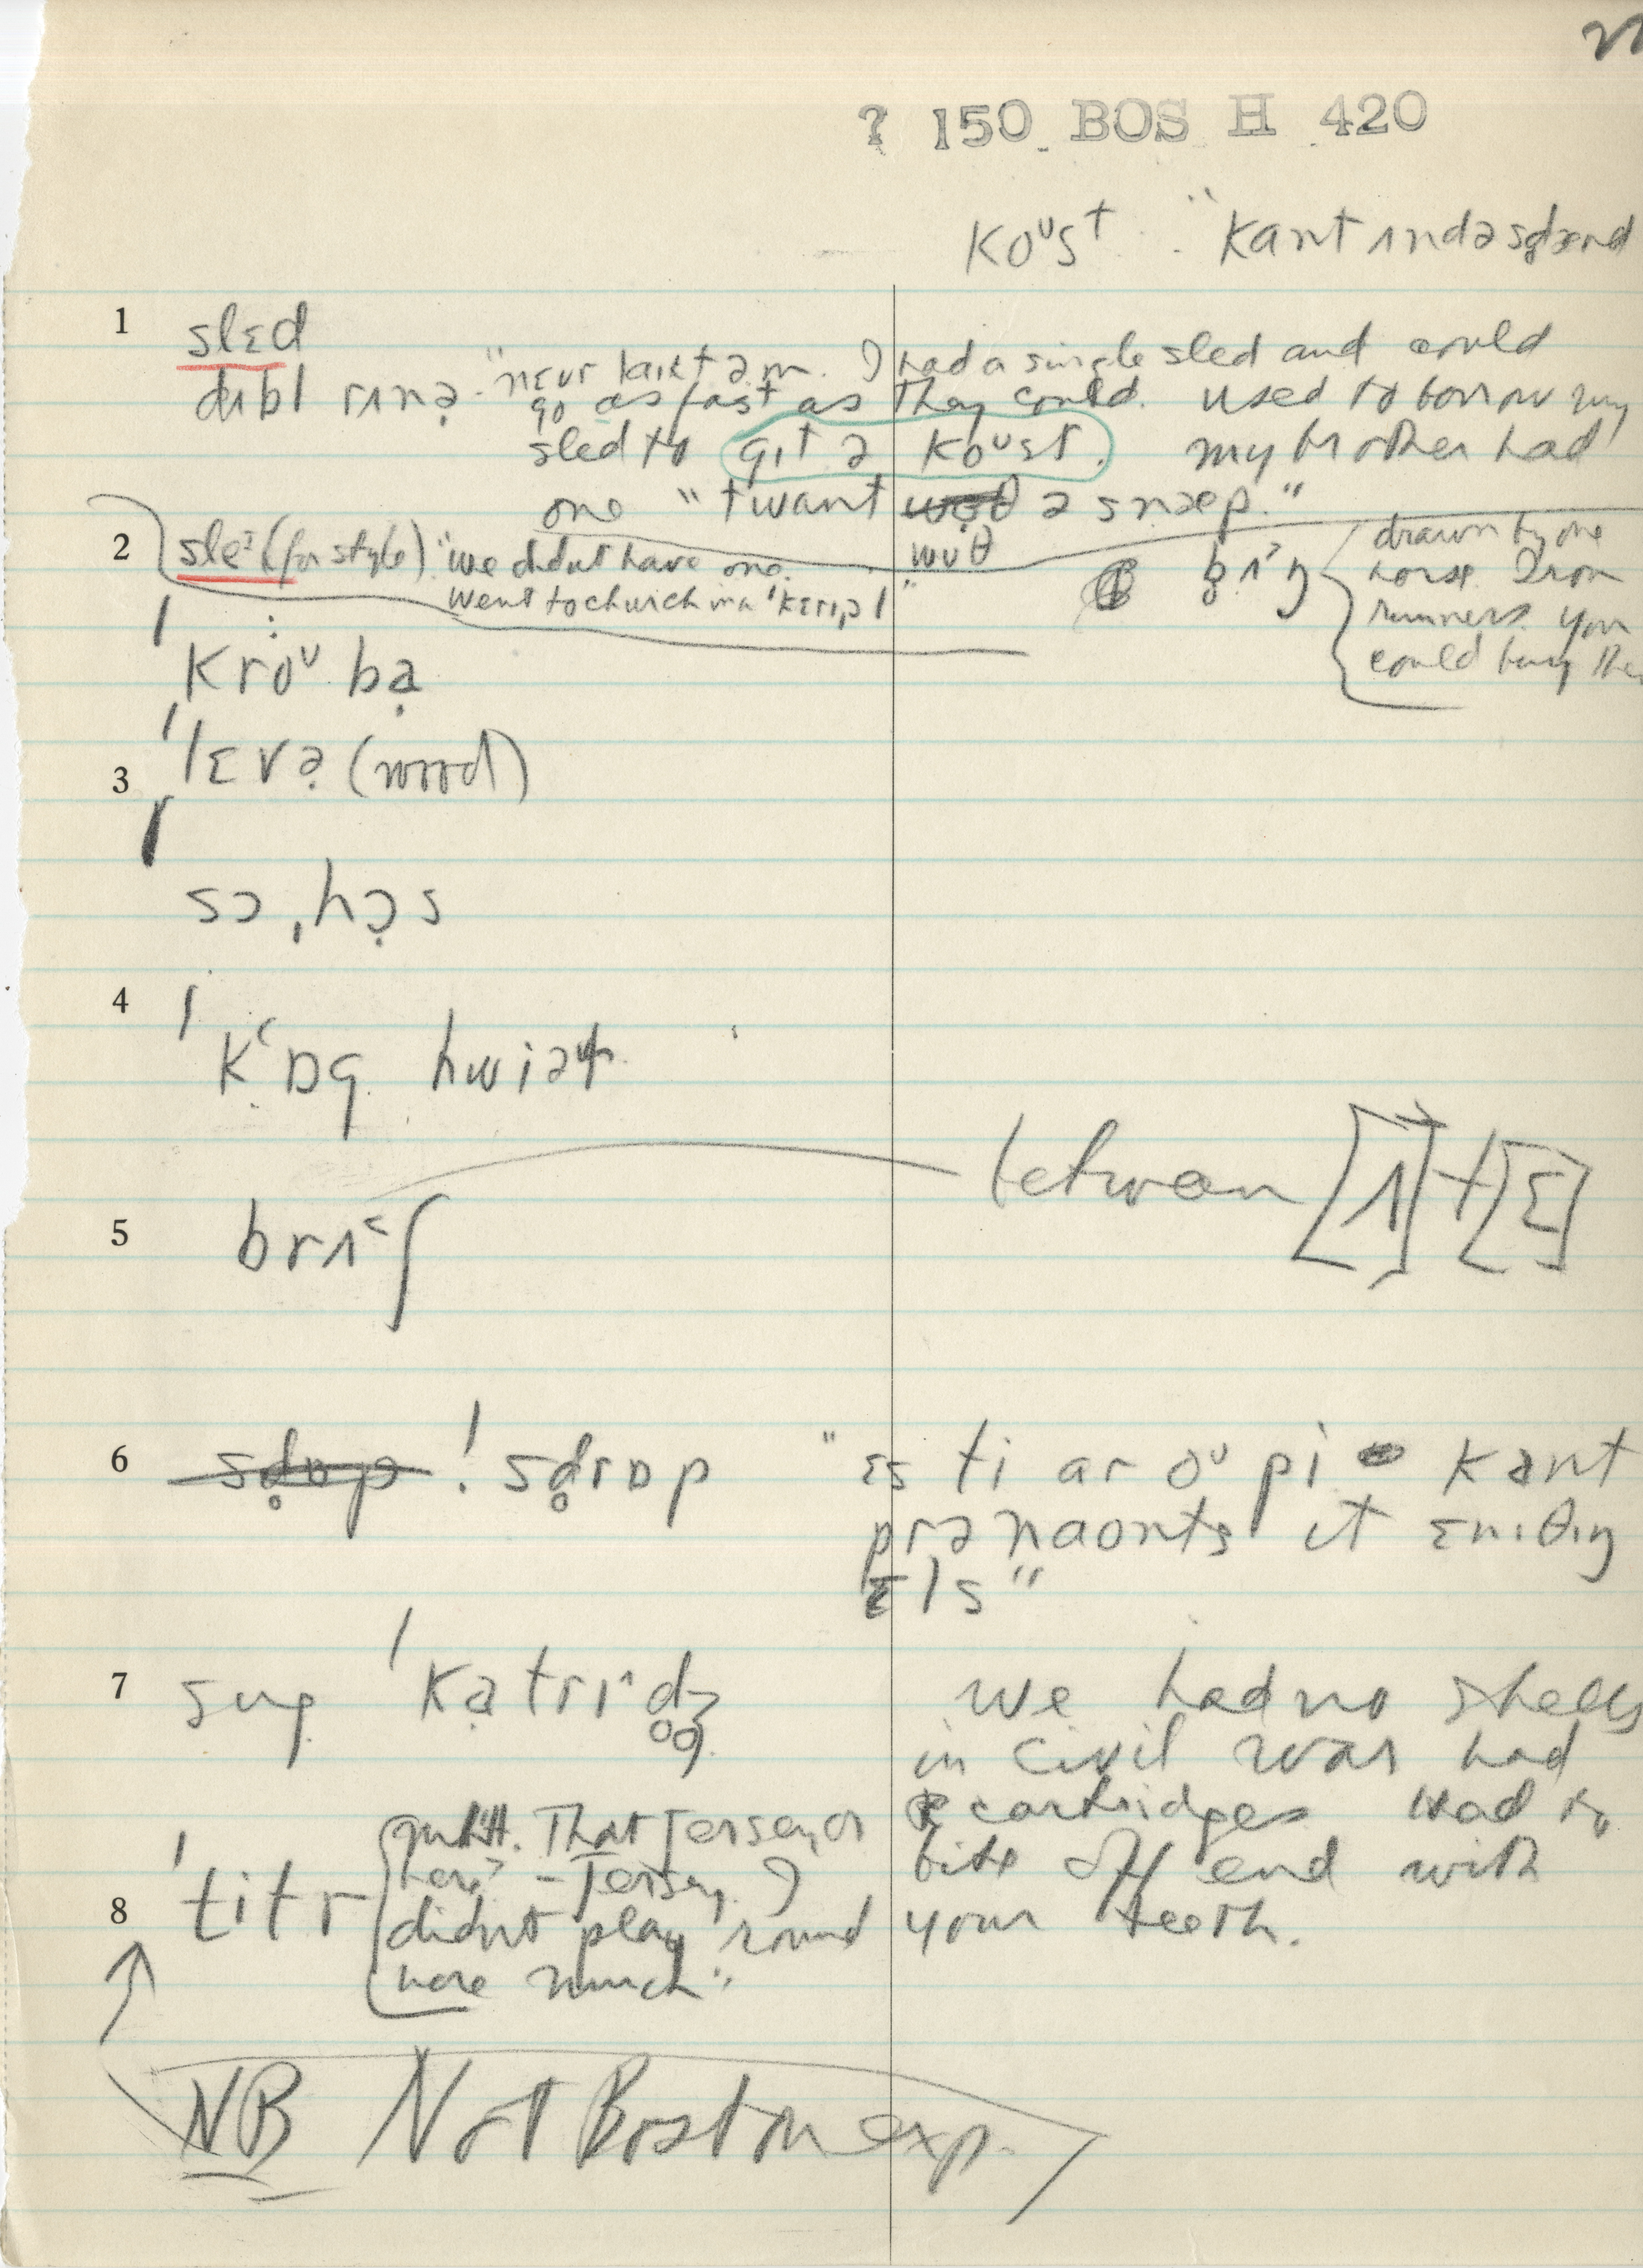 ? 150 BOS H 420
koᵘst "kant ʌndəsd̥ænd
1 slɛd
dʌbl rʌnə̣ "nɛvr laɪkt əm. I had a single sled and could
go as fast as they could. used to borrow my
sled to gɪt ə koᵘst. my brother had
one "twant wʊθ ə snæp."
2 sle (for style) "we didn't have one.
went to church in a 'kɛrɪˌəl"
b̥ʌˈŋ
drawn by one
horse Iron
runners you
could buy
ˈkroᵘ bạ
3 ˈlɛvə̣ (wood)
sɔˌhɔ̣s
4 ˈkʽɒg hwiəl
between [ʌ] + [ɛ]
5 brʌ˂ʃ
6 ! sd̥rɒp "ɛs ti ar oᵘ pi kant
prənaʊnts ɪt ɛnɪθɪŋ
ɛls"
7 gʌp ˈkạtrɪˆd̥ʒ̊ we had no shells
in civil war had
cartridges Had to
bite off end with
your teeth.
8 ˈtitr That Jersey, or
here? – Jersey. I
didn't play round
here much"
NB Not Boston exp.